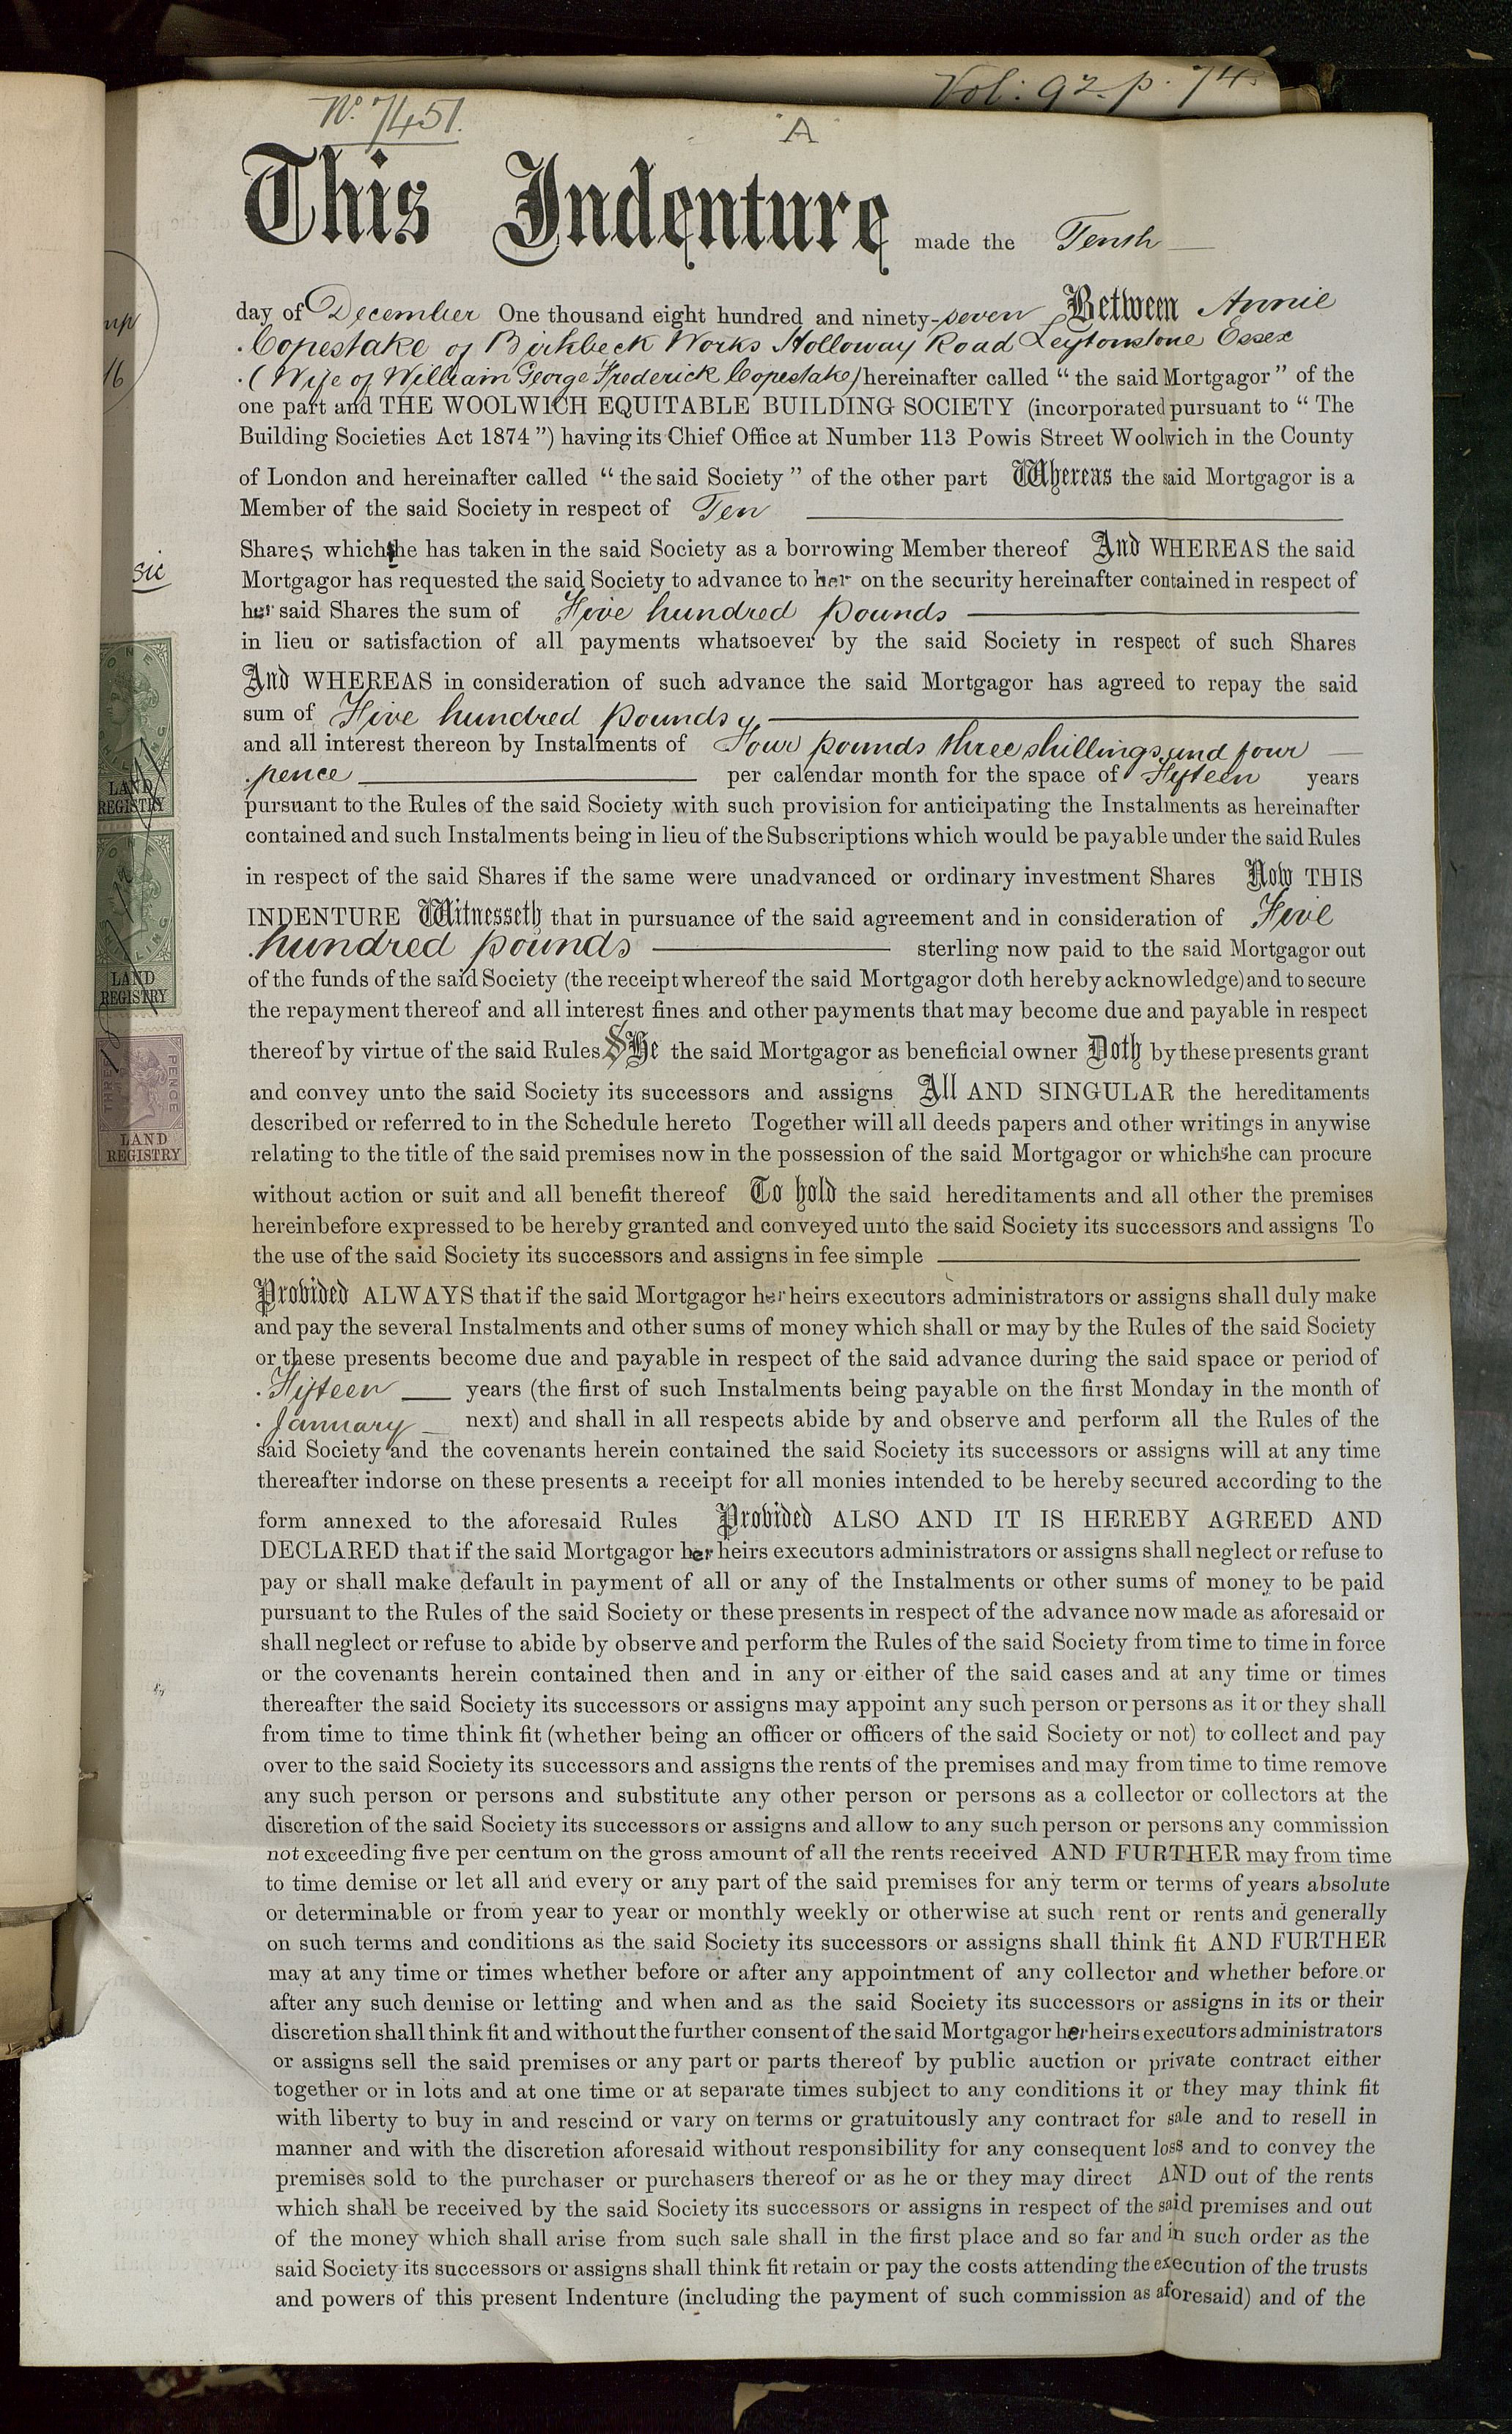 Vol: 92. p. 74.
No. 7451.
"A"
This Indenture made the Tenth
day of December One thousand eight hundred and ninety-seven Between Annie
Copestake of Birkbeck Works Holloway Road Leytonstone Essex
(Wife of William George Frederick Copestake) hereinafter called "the said Mortgagor" of the
one part and THE WOOLWICH EQUITABLE BUILDING SOCIETY (incorporated pursuant to "The
Building Societies Act 1874") having its Chief Office at Number 113 Powis Street Woolwich in the County
of London and hereinafter called "the said Society" of the other part Whereas the said Mortgagor is a
Member of the said Society in respect of Ten
Shares which she has taken in the said Society as a borrowing Member thereof And WHEREAS the said
Mortgagor has requested the said Society to advance to her on the security hereinafter contained in respect of
her said Shares the sum of Five hundred pounds
in lieu or satisfaction of all payments whatsoever by the said Society in respect of such Shares
And WHEREAS in consideration of such advance the said Mortgagor has agreed to repay the said
sum of Five hundred pounds
and all interest thereon by Instalments of Four pounds three shillings and four
pence per calendar month for the space of Fifteen years
pursuant to the Rules of the said Society with such provision for anticipating the Instalments as hereinafter
contained and such Instalments being in lieu of the Subscriptions which would be payable under the said Rules
in respect of the said Shares if the same were unadvanced or ordinary investment Shares Now THIS
INDENTURE Witnesseth that in pursuance of the said agreement and in consideration of Five
hundred pounds sterling now paid to the said Mortgagor out
of the funds of the said Society (the receipt whereof the said Mortgagor doth hereby acknowledge) and to secure
the repayment thereof and all interest fines and other payments that may become due and payable in respect
thereof by virtue of the said Rules SHe the said Mortgagor as beneficial owner Doth by these presents grant
and convey unto the said Society its successors and assigns All AND SINGULAR the hereditaments
described or referred to in the Schedule hereto Together will all deeds papers and other writings in anywise
relating to the title of the said premises now in the possession of the said Mortgagor or which she can procure
without action or suit and all benefit thereof To hold the said hereditaments and all other the premises
hereinbefore expressed to be hereby granted and conveyed unto the said Society its successors and assigns To
the use of the said Society its successors and assigns in fee simple
Provided ALWAYS that if the said Mortgagor her heirs executors administrators or assigns shall duly make
and pay the several Instalments and other sums of money which shall or may by the Rules of the said Society
or these presents become due and payable in respect of the said advance during the said space or period of
Fifteen years (the first of such Instalments being payable on the first Monday in the month of
January next) and shall in all respects abide by and observe and perform all the Rules of the
said Society and the covenants herein contained the said Society its successors or assigns will at any time
thereafter indorse on these presents a receipt for all monies intended to be hereby secured according to the
form annexed to the aforesaid Rules Provided ALSO AND IT IS HEREBY AGREED AND
DECLARED that if the said Mortgagor her heirs executors administrators or assigns shall neglect or refuse to
pay or shall make default in payment of all or any of the Instalments or other sums of money to be paid
pursuant to the Rules of the said Society or these presents in respect of the advance now made as aforesaid or
shall neglect or refuse to abide by observe and perform the Rules of the said Society from time to time in force
or the covenants herein contained then and in any or either of the said cases and at any time or times
thereafter the said Society its successors or assigns may appoint any such person or persons as it or they shall
from time to time think fit (whether being an officer or officers of the said Society or not) to collect and pay
over to the said Society its successors and assigns the rents of the premises and may from time to time remove
any such person or persons and substitute any other person or persons as a collector or collectors at the
discretion of the said Society its successors or assigns and allow to any such person or persons any commission
not exceeding five per centum on the gross amount of all the rents received AND FURTHER may from time
to time demise or let all and every or any part of the said premises for any term or terms of years absolute
or determinable or from year to year or monthly weekly or otherwise at such rent or rents and generally
on such terms and conditions as the said Society its successors or assigns shall think fit AND FURTHER
may at any time or times whether before or after any appointment of any collector and whether before or
after any such demise or letting and when and as the said Society its successors or assigns in its or their
discretion shall think fit and without the further consent of the said Mortgagor her heirs executors administrators
or assigns sell the said premises or any part or parts thereof by public auction or private contract either
together or in lots and at one time or at separate times subject to any conditions it or they may think fit
with liberty to buy in and rescind or vary on terms or gratuitously any contract for sale and to resell in
manner and with the discretion aforesaid without responsibility for any consequent loss and to convey the
premises sold to the purchaser or purchasers thereof or as he or they may direct AND out of the rents
which shall be received by the said Society its successors or assigns in respect of the said premises and out
of the money which shall arise from such sale shall in the first place and so far and in such order as the
said Society its successors or assigns shall think fit retain or pay the costs attending the execution of the trusts
and powers of this present Indenture (including the payment of such commission as aforesaid) and of the
sic
ONE
LAND
REGISTRY
LAND
REGISTRY
THREE PENCE
LAND
REGISTRY